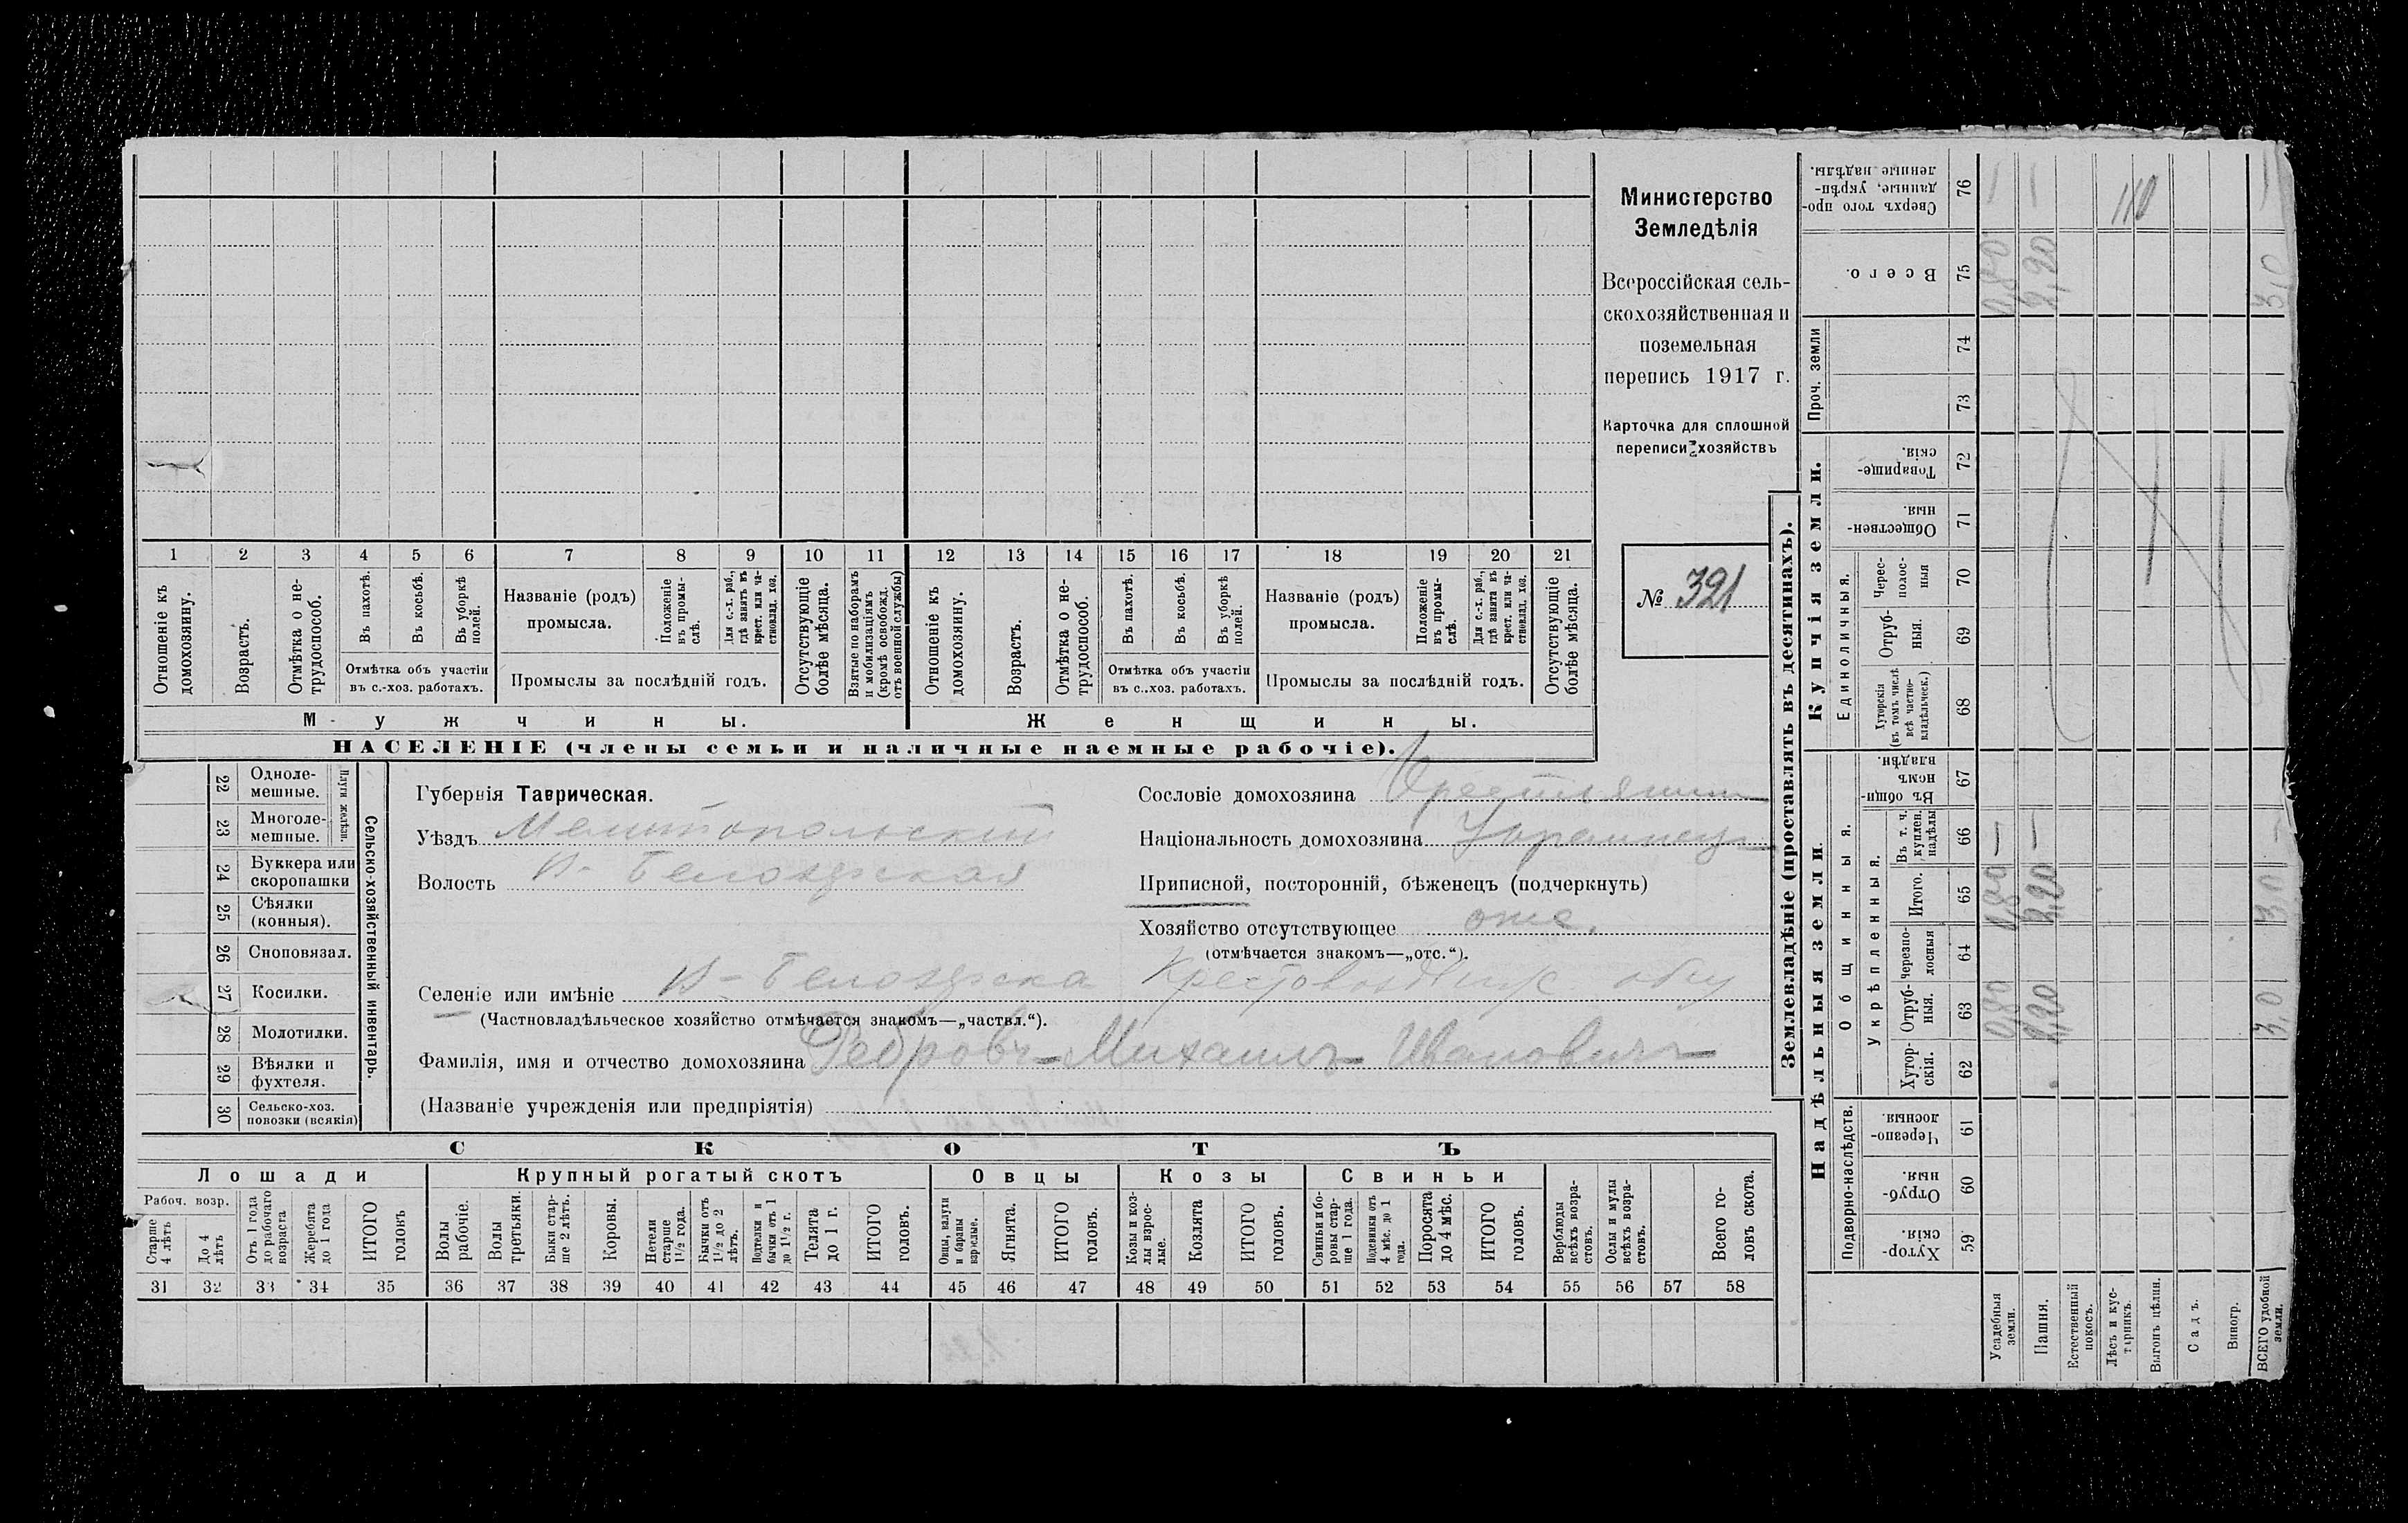 Министерство
Земледѣлія
Всероссійская сель-
скохозяйственная и
поземельная
перепись 1917 г.
Карточка для сплошной
переписи хозяйствъ
№ 321
1 2 3 4 5 6 7 8 9 10 11 12 13 14 15 16 17 18 19 20 21
Отношеніе къ домохозяину.
Возрастъ.
Отмѣтка о не-трудоспособ.
Въ пахотѣ.
Въ косьбѣ.
Въ уборкѣ полей.
Отмѣтка объ участіи
въ с.-хоз. работахъ.
Названіе (родъ)
промысла.
Положеніе въ промы-слѣ.
Для с.-х. раб., гдѣ занятъ въ крест. или ча-стновлад. хоз.
Промыслы за послѣдній годъ.
Отсутствующіе болѣе мѣсяца.
Взятые по наборамъ и мобилизаціямъ (кромѣ освобожд. отъ военной службы)
Отношеніе къ домохозяину.
Возрастъ.
Отмѣтка о не-трудоспособ.
Въ пахотѣ.
Въ косьбѣ.
Въ уборкѣ полей.
Отмѣтка объ участіи
въ с..хоз. работахъ.
Названіе (родъ)
промысла.
Положеніе въ промы-слѣ.
Для с.-х. раб., гдѣ занята въ крест. или ча-стновлад. хоз.
Промыслы за послѣдній годъ.
Отсутствующіе болѣе мѣсяца.
Мужчины.
Женщины.
НАСЕЛЕНІЕ (члены семьи и наличные наемные рабочіе).
22 Одноле-мешные.
23 Многоле-мешные.
Плуги желѣзн.
24 Буккера или скоропашки
25 Сѣялки (конныя).
26 Сноповязал.
27 Косилки.
28 Молотилки.
29 Вѣялки и фухтеля.
30 Сельско-хоз. повозки (всякія)
Сельско-хозяйственный инвентарь.
Губернія Таврическая.
Уѣздъ Мелитопольскій
Волость В- Белозерская
Сословіе домохозяина Крестьянин
Національность домохозяина Украинец
Приписной, посторонній, бѣженецъ (подчеркнуть)
Хозяйство отсутствующее отс.
(отмѣчается знакомъ—„отс.“).
Селеніе или имѣніе В-Белозерка Крестовоздвиж общ
(Частновладѣльческое хозяйство отмѣчается знакомъ—„частвл.“).
Фамилія, имя и отчество домохозяина Михаилъ Ивановичъ
(Названіе учрежденія или предпріятія)
СКОТЪ
Лошади
Крупный рогатый скотъ
Овцы
Козы
Свиньи
Рабоч. возр.
Старше 4 лѣтъ
До 4 лѣтъ
Отъ 1 года до рабочаго возраста
Жеребята до 1 года
ИТОГО головъ
Волы рабочіе.
Волы третьяки.
Быки стар-ше 2 лѣтъ.
Коровы.
Нетели старше 1½ года.
Бычки отъ 1½ до 2 лѣтъ.
Подтелки и бычки отъ 1 до 1½ г.
Телята до 1 г.
ИТОГО головъ.
Овцы, валухи и бараны взрослые.
Ягнята.
ИТОГО головъ.
Козы и коз-лы взрос-лые.
Козлята
ИТОГО головъ.
Свиньи и бо-ровы стар-ше 1 года.
Подсвинки отъ 4 мѣс. до 1 года.
Поросята до 4 мѣс.
ИТОГО головъ.
Верблюды всѣхъ возра-стовъ.
Ослы и мулы всѣхъ возра-стовъ.
Всего го-ловъ скота.
31 32 33 34 35 36 37 38 39 40 41 42 43 44 45 46 47 48 49 50 51 52 53 54 55 56 57 58
Землевладѣніе (проставлять въ десятинахъ).
Надѣльныя земли.
Подворно-наслѣдств.
Хутор-скія. 59
Отруб-ныя. 60
Черезпо-лосныя 61
Общинныя.
Укрѣпленныя.
Хутор-скія. 62
Отруб-ныя. 63 0,80 2,20 3,0
Черезпо-лосныя 64
Итого. 65 0,80 2,20 3,0
Въ т. ч. куплен. надѣлы 66 — — —
Въ общи-номъ владѣн. 67
Купчія земли.
Единоличныя.
Хуторскія (въ томъ числѣ всѣ частно-владѣльческ.) 68
Отруб-ныя. 69
Черес-полос-ныя 70
Обществен-ныя. 71
Товарище-скія. 72
Проч. земли
73
74
Всего. 75 0,80 2,20 3,0
Сверхъ того про-данные, укрѣп-ленные надѣлы. 76
Усадебныя земли.
Пашня.
Естественный покосъ.
Лѣсъ и кус-тарникъ.
Выгонъ цѣлин.
Садъ.
Виногр.
ВСЕГО удобной земли.